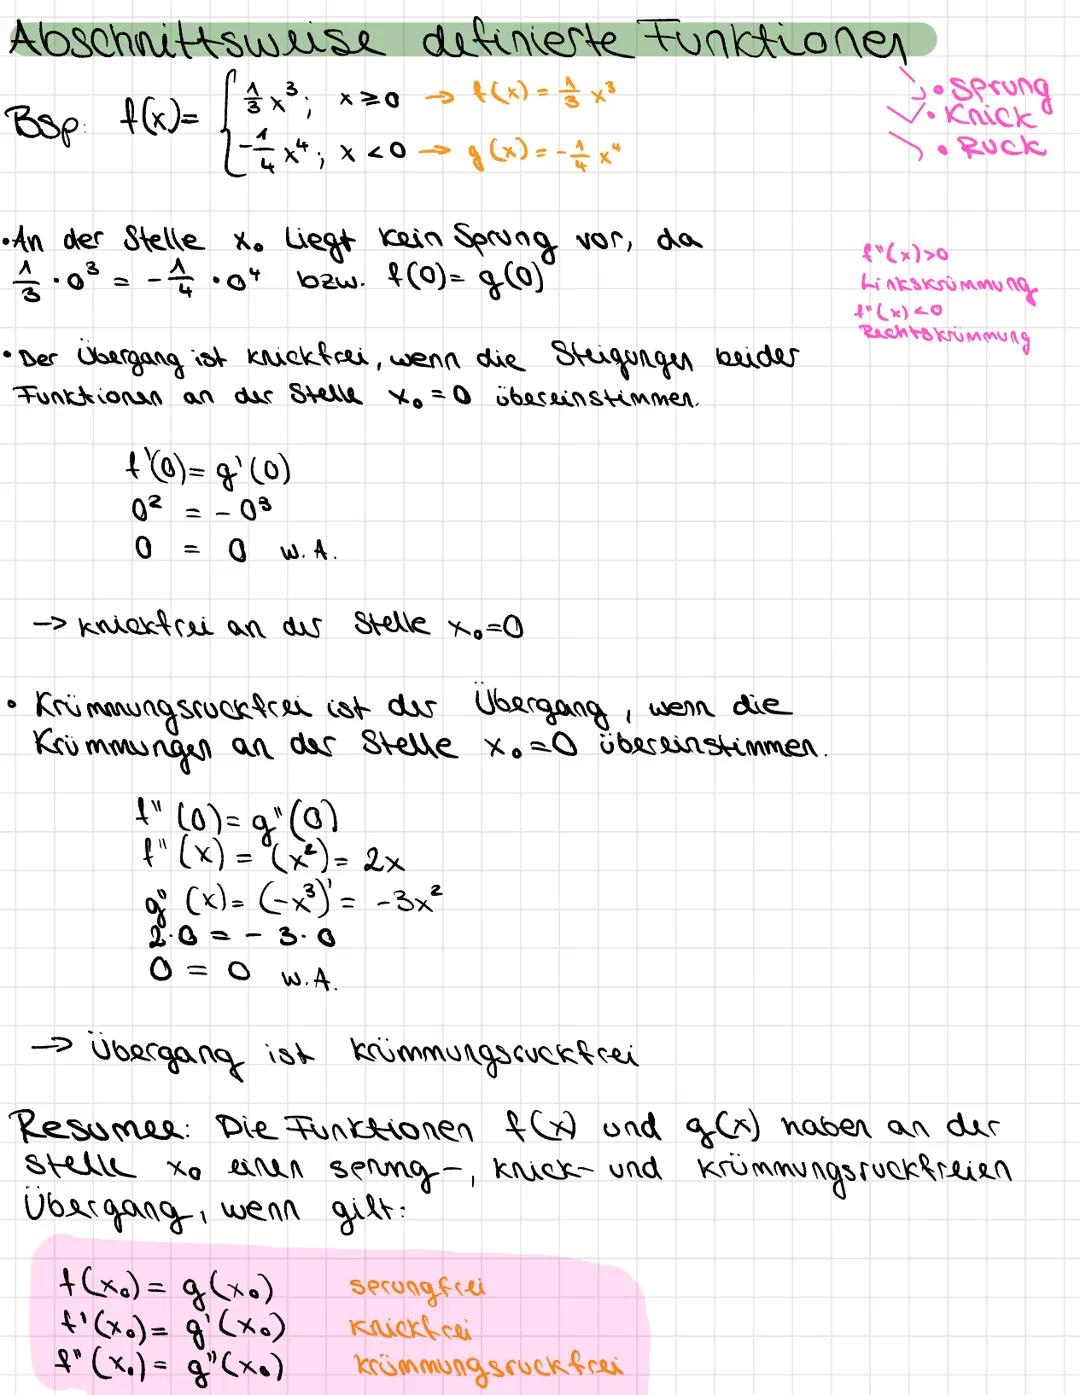 Abschnittsweise definierte Funktionen
Bsp: f(x)= { 1/3 x³; x≥0 → f(x) = 1/3 x³
-1/4 x⁴; x<0 → g(x) = -1/4 x⁴
• Sprung
• Knick
• Ruck
• An der Stelle x₀ liegt kein Sprung vor, da
1/3 · 0³ = -1/4 · 0⁴ bzw. f(0) = g(0)
f''(x)>0
Linkskrümmung
f''(x)<0
Rechtskrümmung
• Der Übergang ist knickfrei, wenn die Steigungen beider
Funktionen an der Stelle x₀ = 0 übereinstimmen.
f'(0) = g'(0)
0² = - 0³
0 = 0 w.A.
-> knickfrei an der Stelle x₀=0
• Krümmungsruckfrei ist der Übergang, wenn die
Krümmungen an der Stelle x₀=0 übereinstimmen.
f''(0) = g''(0)
f''(x) = (x²)' = 2x
g''(x) = (-x³)' = -3x²
2·0 = - 3·0
0 = 0 w.A.
-> Übergang ist krümmungsruckfrei
Resumee: Die Funktionen f(x) und g(x) haben an der
Stelle x₀ einen sprung-, knick- und krümmungsruckfreien
Übergang, wenn gilt:
f(x₀) = g(x₀) sprungfrei
f'(x₀) = g'(x₀) knickfrei
f''(x₀) = g''(x₀) krümmungsruckfrei